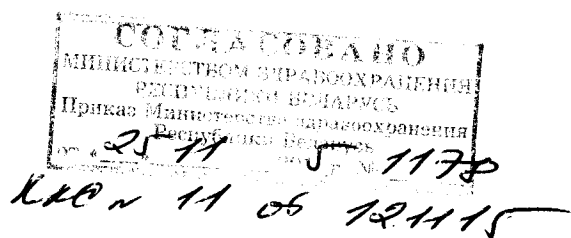 СОГЛАСОВАНО
МИНИСТЕРСТВОМ ЗДРАВООХРАНЕНИЯ
РЕСПУБЛИКИ БЕЛАРУСЬ
Приказ Министерства здравоохранения
Республики Беларусь
от « 25 11 5 г. № 1178
ККС № 11 об 121115